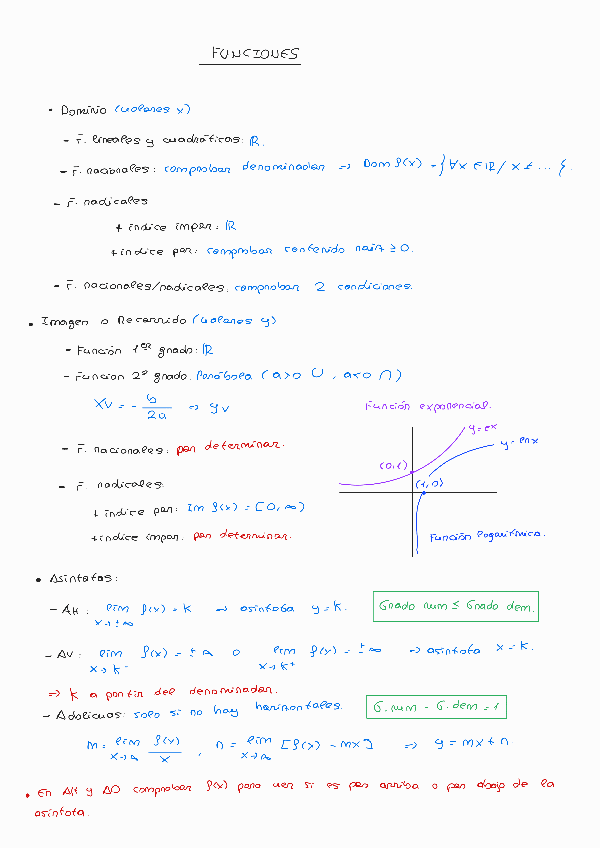 FUNCIONES
• Dominio (valores x)
- F. lineales y cuadráticas: ℝ.
- F. racionales: comprobar denominador ⇒ Dom f(x) = {∀x ∈ ℝ / x ≠ ... }.
- F. radicales
+ índice impar: ℝ
+ índice par: comprobar contenido raíz ≥ 0.
- F. racionales/radicales: comprobar 2 condiciones.
• Imagen o Recorrido (valores y)
- Función 1er grado: ℝ
- Función 2º grado: Parábola (a>0 ∪, a<0 ∩)
Xv = - b/2a ⇒ yv
Función exponencial.
y=ex
y=lnx
(0,1)
- F. racionales: por determinar.
- F. radicales:
(1,0)
+ índice par: Im f(x) = [0, ∞)
+ índice impar: por determinar.
Función logarítmica.
• Asíntotas:
- AH: lim x→±∞ f(x) = k ⇒ asíntota y = k.
Grado num ≤ Grado dem.
- AV: lim x→k⁻ f(x) = ±∞ o lim x→k⁺ f(x) = ±∞ ⇒ asíntota x = k.
⇒ k a partir del denominador.
- AOblicuas: solo si no hay horizontales.
G. num - G. dem = 1
m = lim x→∞ f(x)/x , n = lim x→∞ [f(x) - mx] ⇒ y = mx + n
• En AH y AO comprobar f(x) para ver si es por arriba o por abajo de la
asíntota.